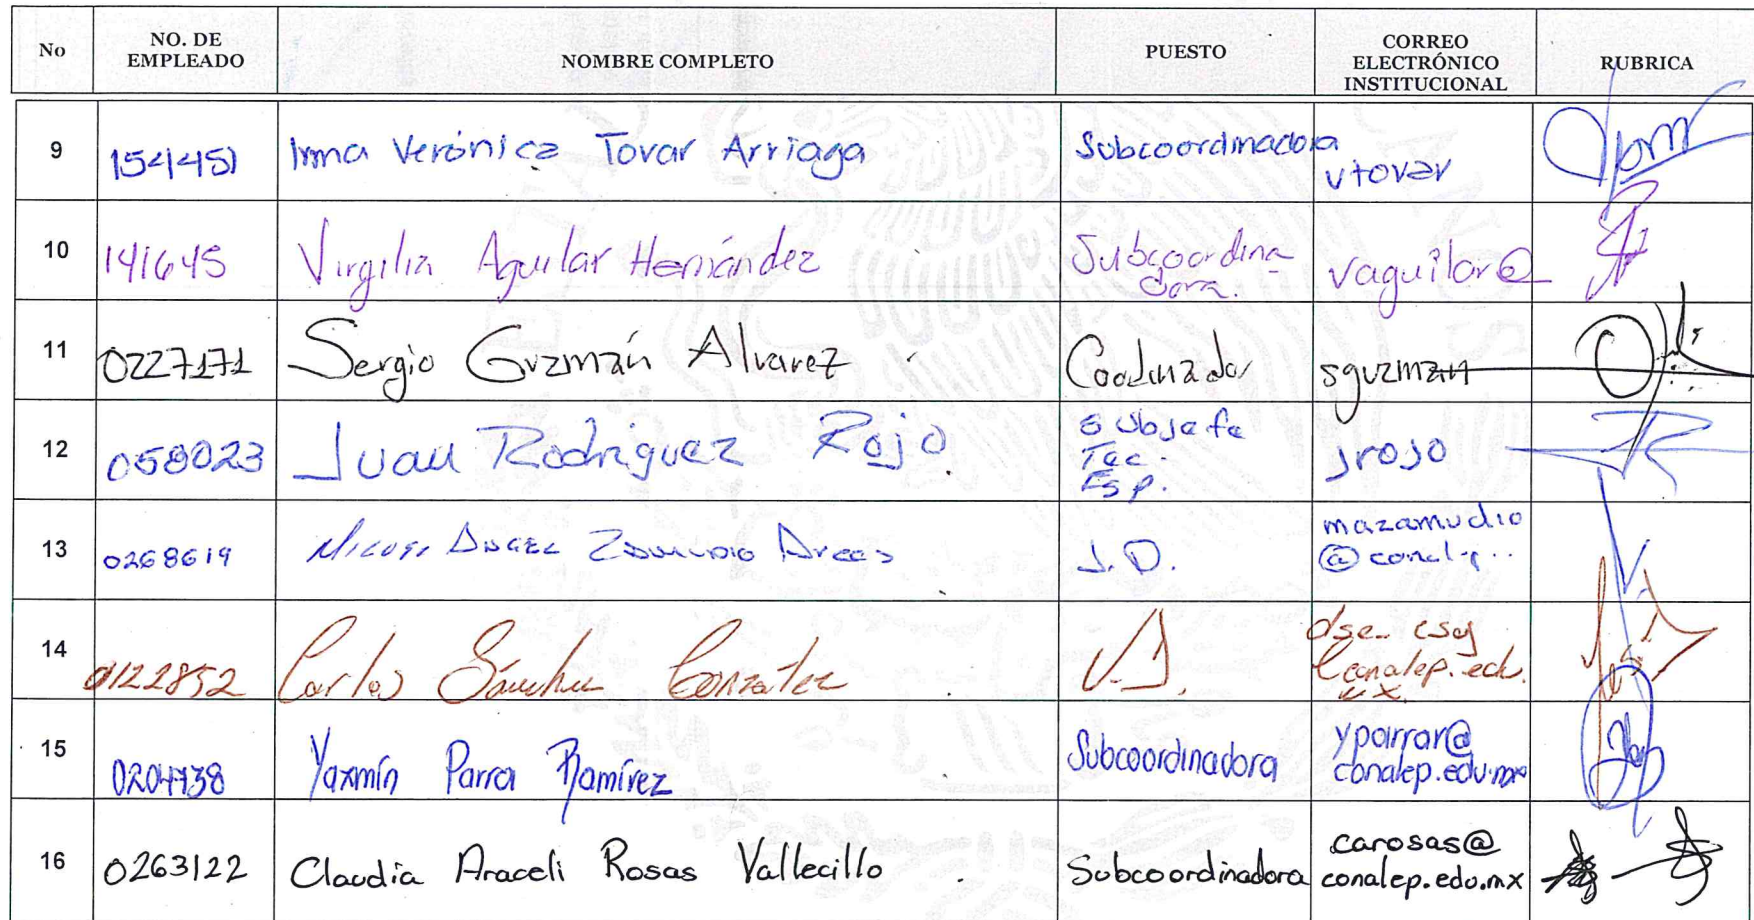 No NO. DE EMPLEADO NOMBRE COMPLETO PUESTO CORREO ELECTRÓNICO INSTITUCIONAL RUBRICA
9 154451 Irma Verónica Tovar Arriaga Subcoordinadora vtovar
10 141645 Virgilia Aguilar Hernández Subcoordina
dora. vaguilar@
11 0227171 Sergio Guzmán Alvarez Coodinador sguzman
12 058023 Juan Rodriguez Rojo Subjefe
Tec.
Esp. jrojo
13 0268619 Miguel Angel Zamudio Arcos J.D. mazamudio
@conalep..
14 0122852 Carlos Sánchez González J.D. dse_csg
conalep.edu.
mx
15 0204738 Yaxmín Parra Ramírez Subcoordinadora yparrar@
conalep.edu.mx
16 0263122 Claudia Araceli Rosas Vallecillo Subcoordinadora carosas@
conalep.edu.mx